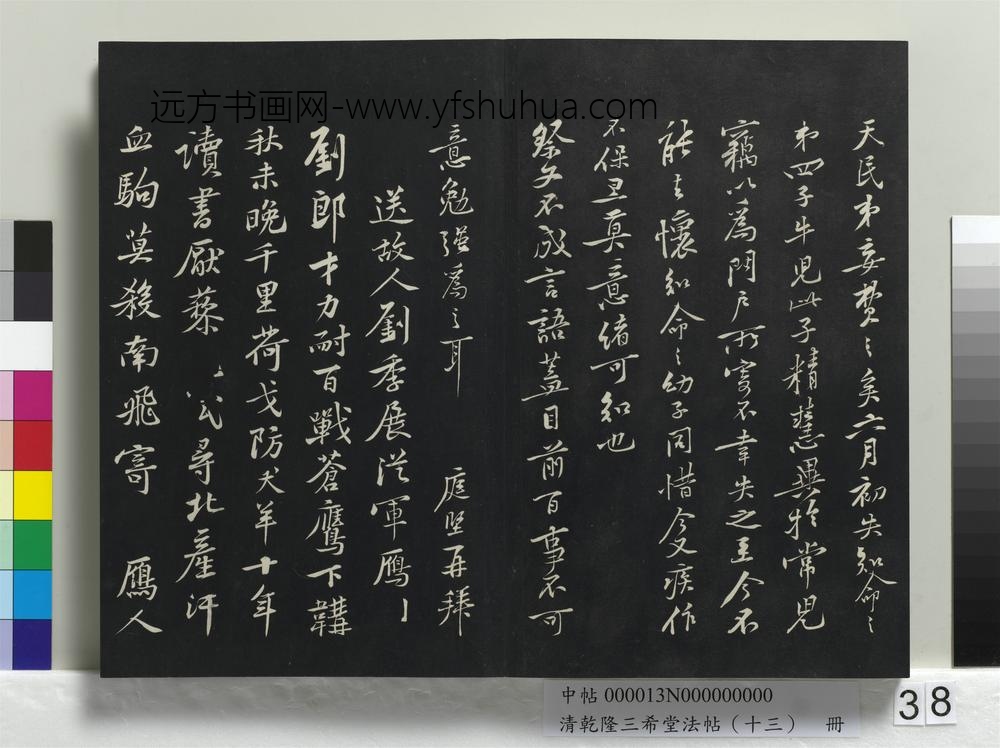 天民弟妾藂〻矣六月初失知命〻
弟四子牛兒此子精慧異於常兒
竊以爲門戶所寄不幸失之至今不
能去懷知命〻幼子同惜今又疾作
不保且莫意緒可知也
祭文不成言語蓋目前百事不可
意勉强爲之耳 庭堅再拜
送故人劉季展從軍鴈
劉郎才力耐百戰蒼鷹下韝
秋未晚千里荷戈防犬羊十年
讀書厭藜
尋北產汗
血駒莫殺南飛寄 鴈人
远方书画网-www.yfshuhua.com
中帖 000013N000000000
清乾隆三希堂法帖（十三） 冊
38